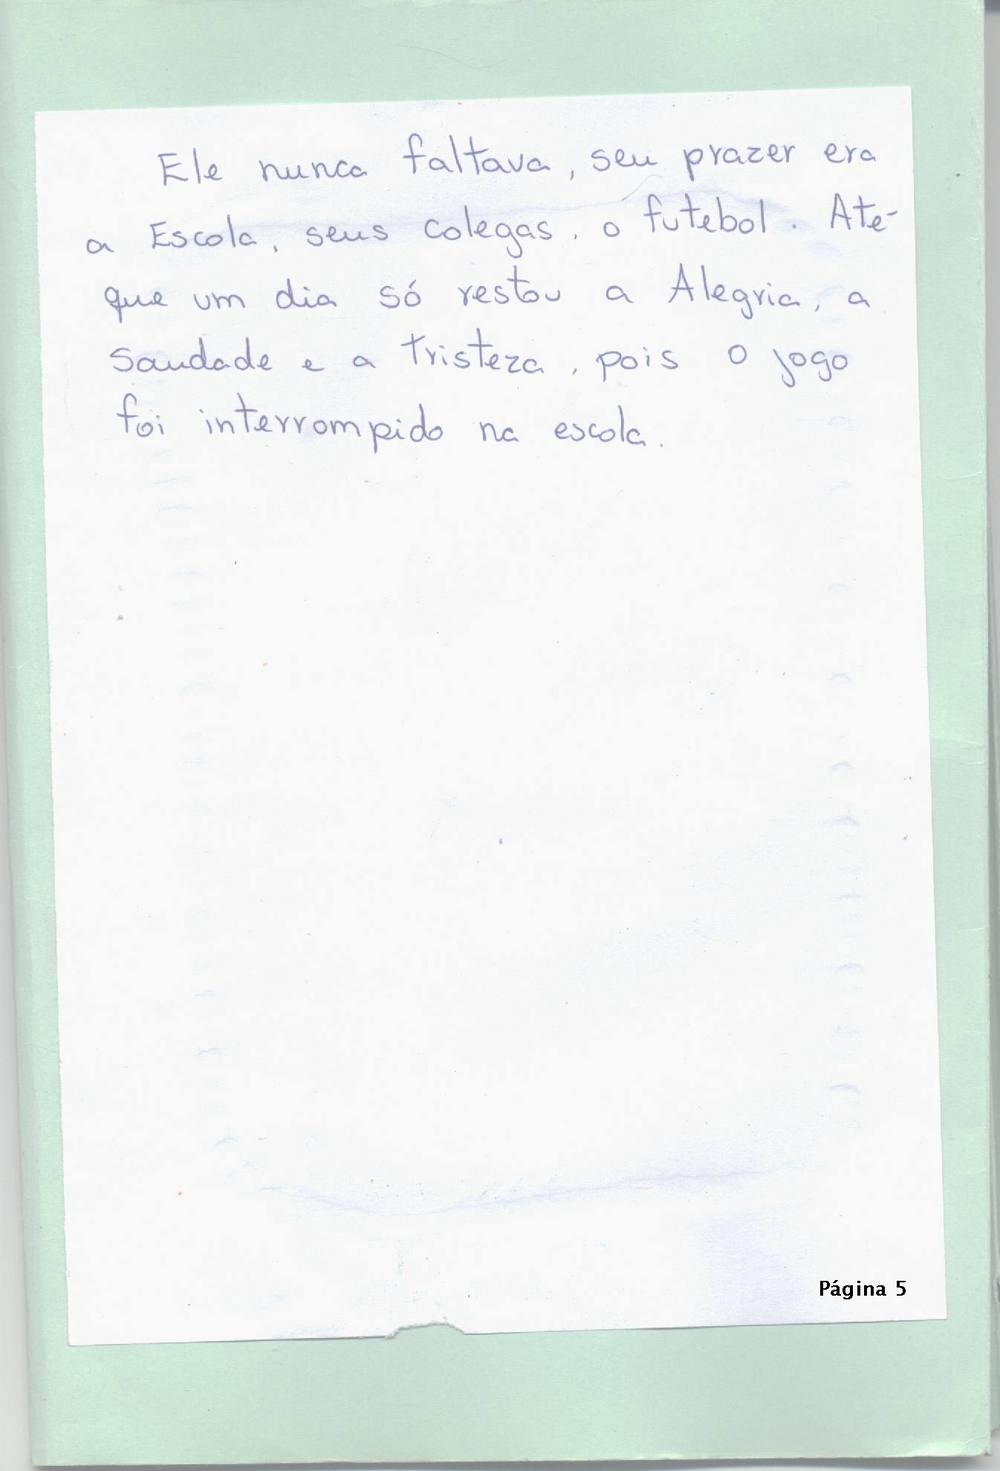 Ele nunca faltava, seu prazer era
a Escola, seus colegas, o futebol. Ate-
que um dia só restou a Alegria, a
Saudade e a Tristeza, pois o jogo
foi interrompido na escola.
Página 5